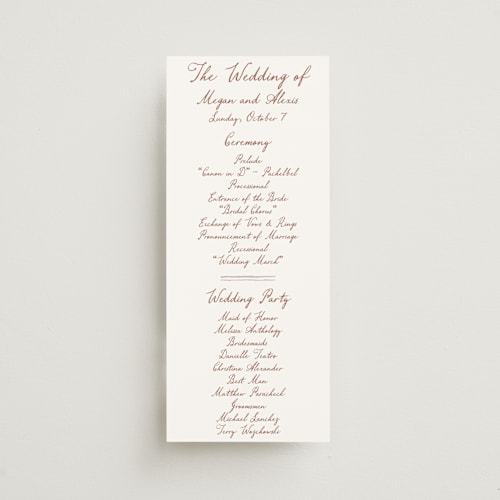 The Wedding of
Megan and Alexis
Sunday, October 7
Ceremony
Prelude
"Canon in D" - Pachelbel
Processional
Entrance of the Bride
"Bridal Chorus"
Exchange of Vows & Rings
Pronouncement of Marriage
Recessional
"Wedding March"
Wedding Party
Maid of Honor
Melissa Anthology
Bridesmaids
Danielle Teatro
Christina Alexander
Best Man
Matthew Paracheck
Groomsmen
Michael Sanchez
Terry Wojchowski